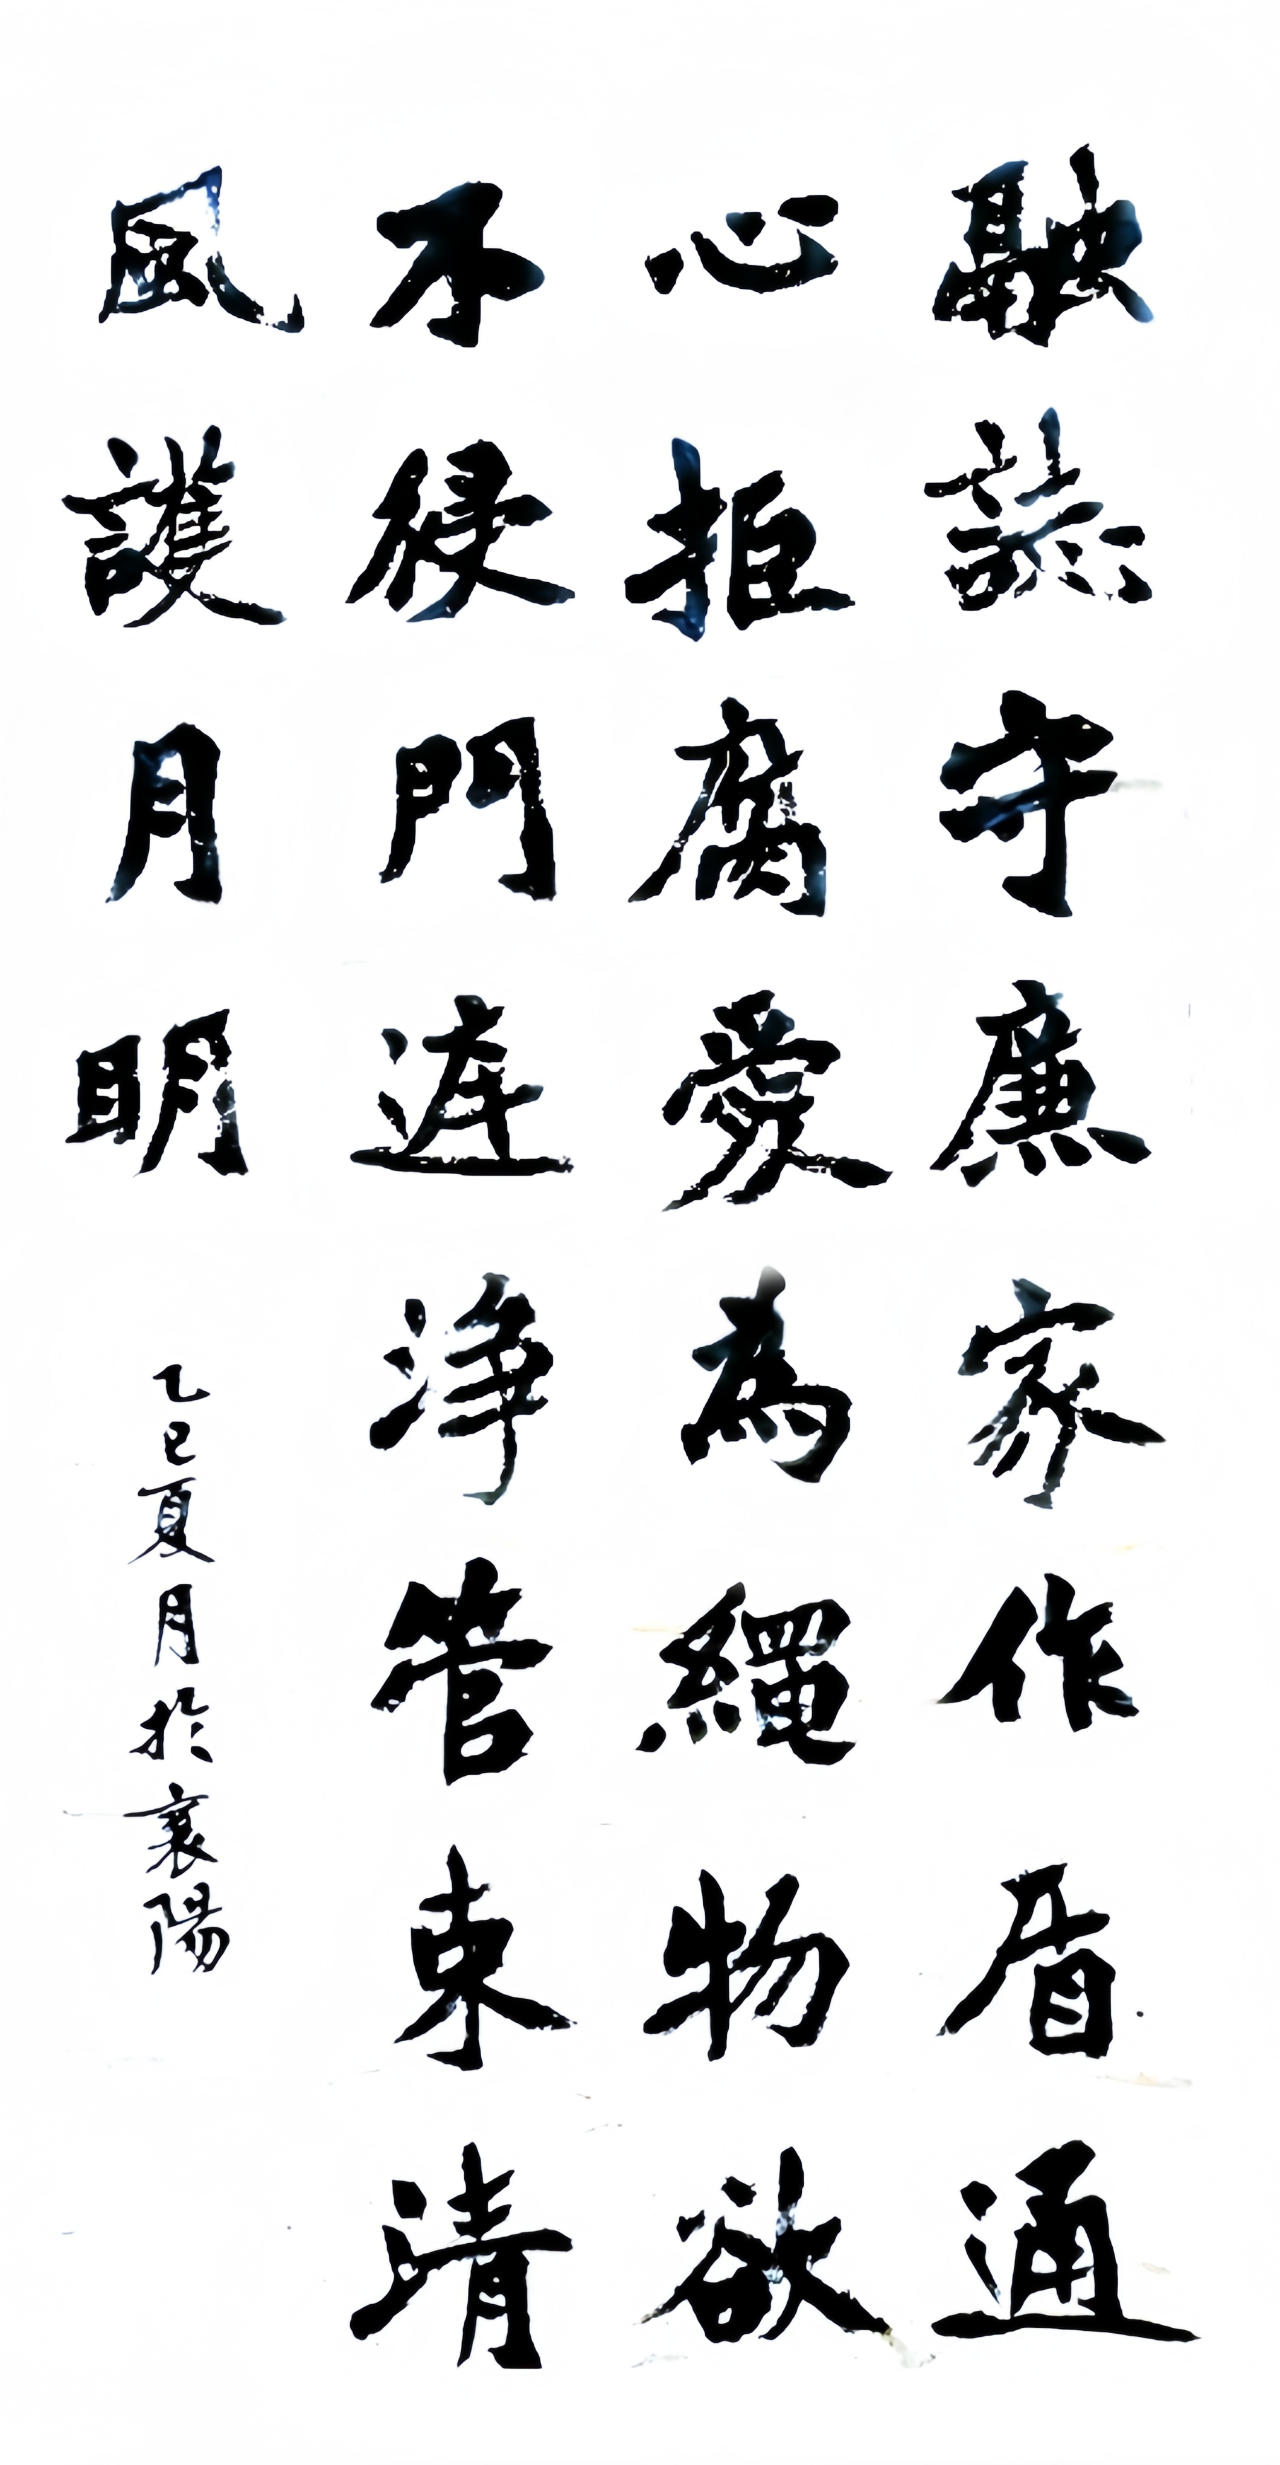 誌守廉家作盾通
心拒腐愛為繩物欲
不侵門淨管束清
風護月明
乙巳夏月於襄陽